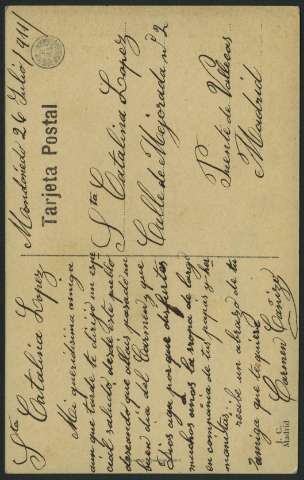 Mondoñedo 26 Julio 1911
Tarjeta Postal
Sta Catalina Lopez
Calle de Mejorada nº 2
Puente de Vallecas
Madrid
Sta Catalina Lopez
Mi queridisima amiga
aun que tarde te dirijo un espe
cial saludo desde este pueblo
deseando que allais pasado un
buen dia del Carmen y que
Dios aga por que disfrutes
muchos anos la rropa de largo
en compania de tus papas y her
manitas,
recibe un abrazo de tu
amiga que te quiere
Carmen
J. C.
Madrid